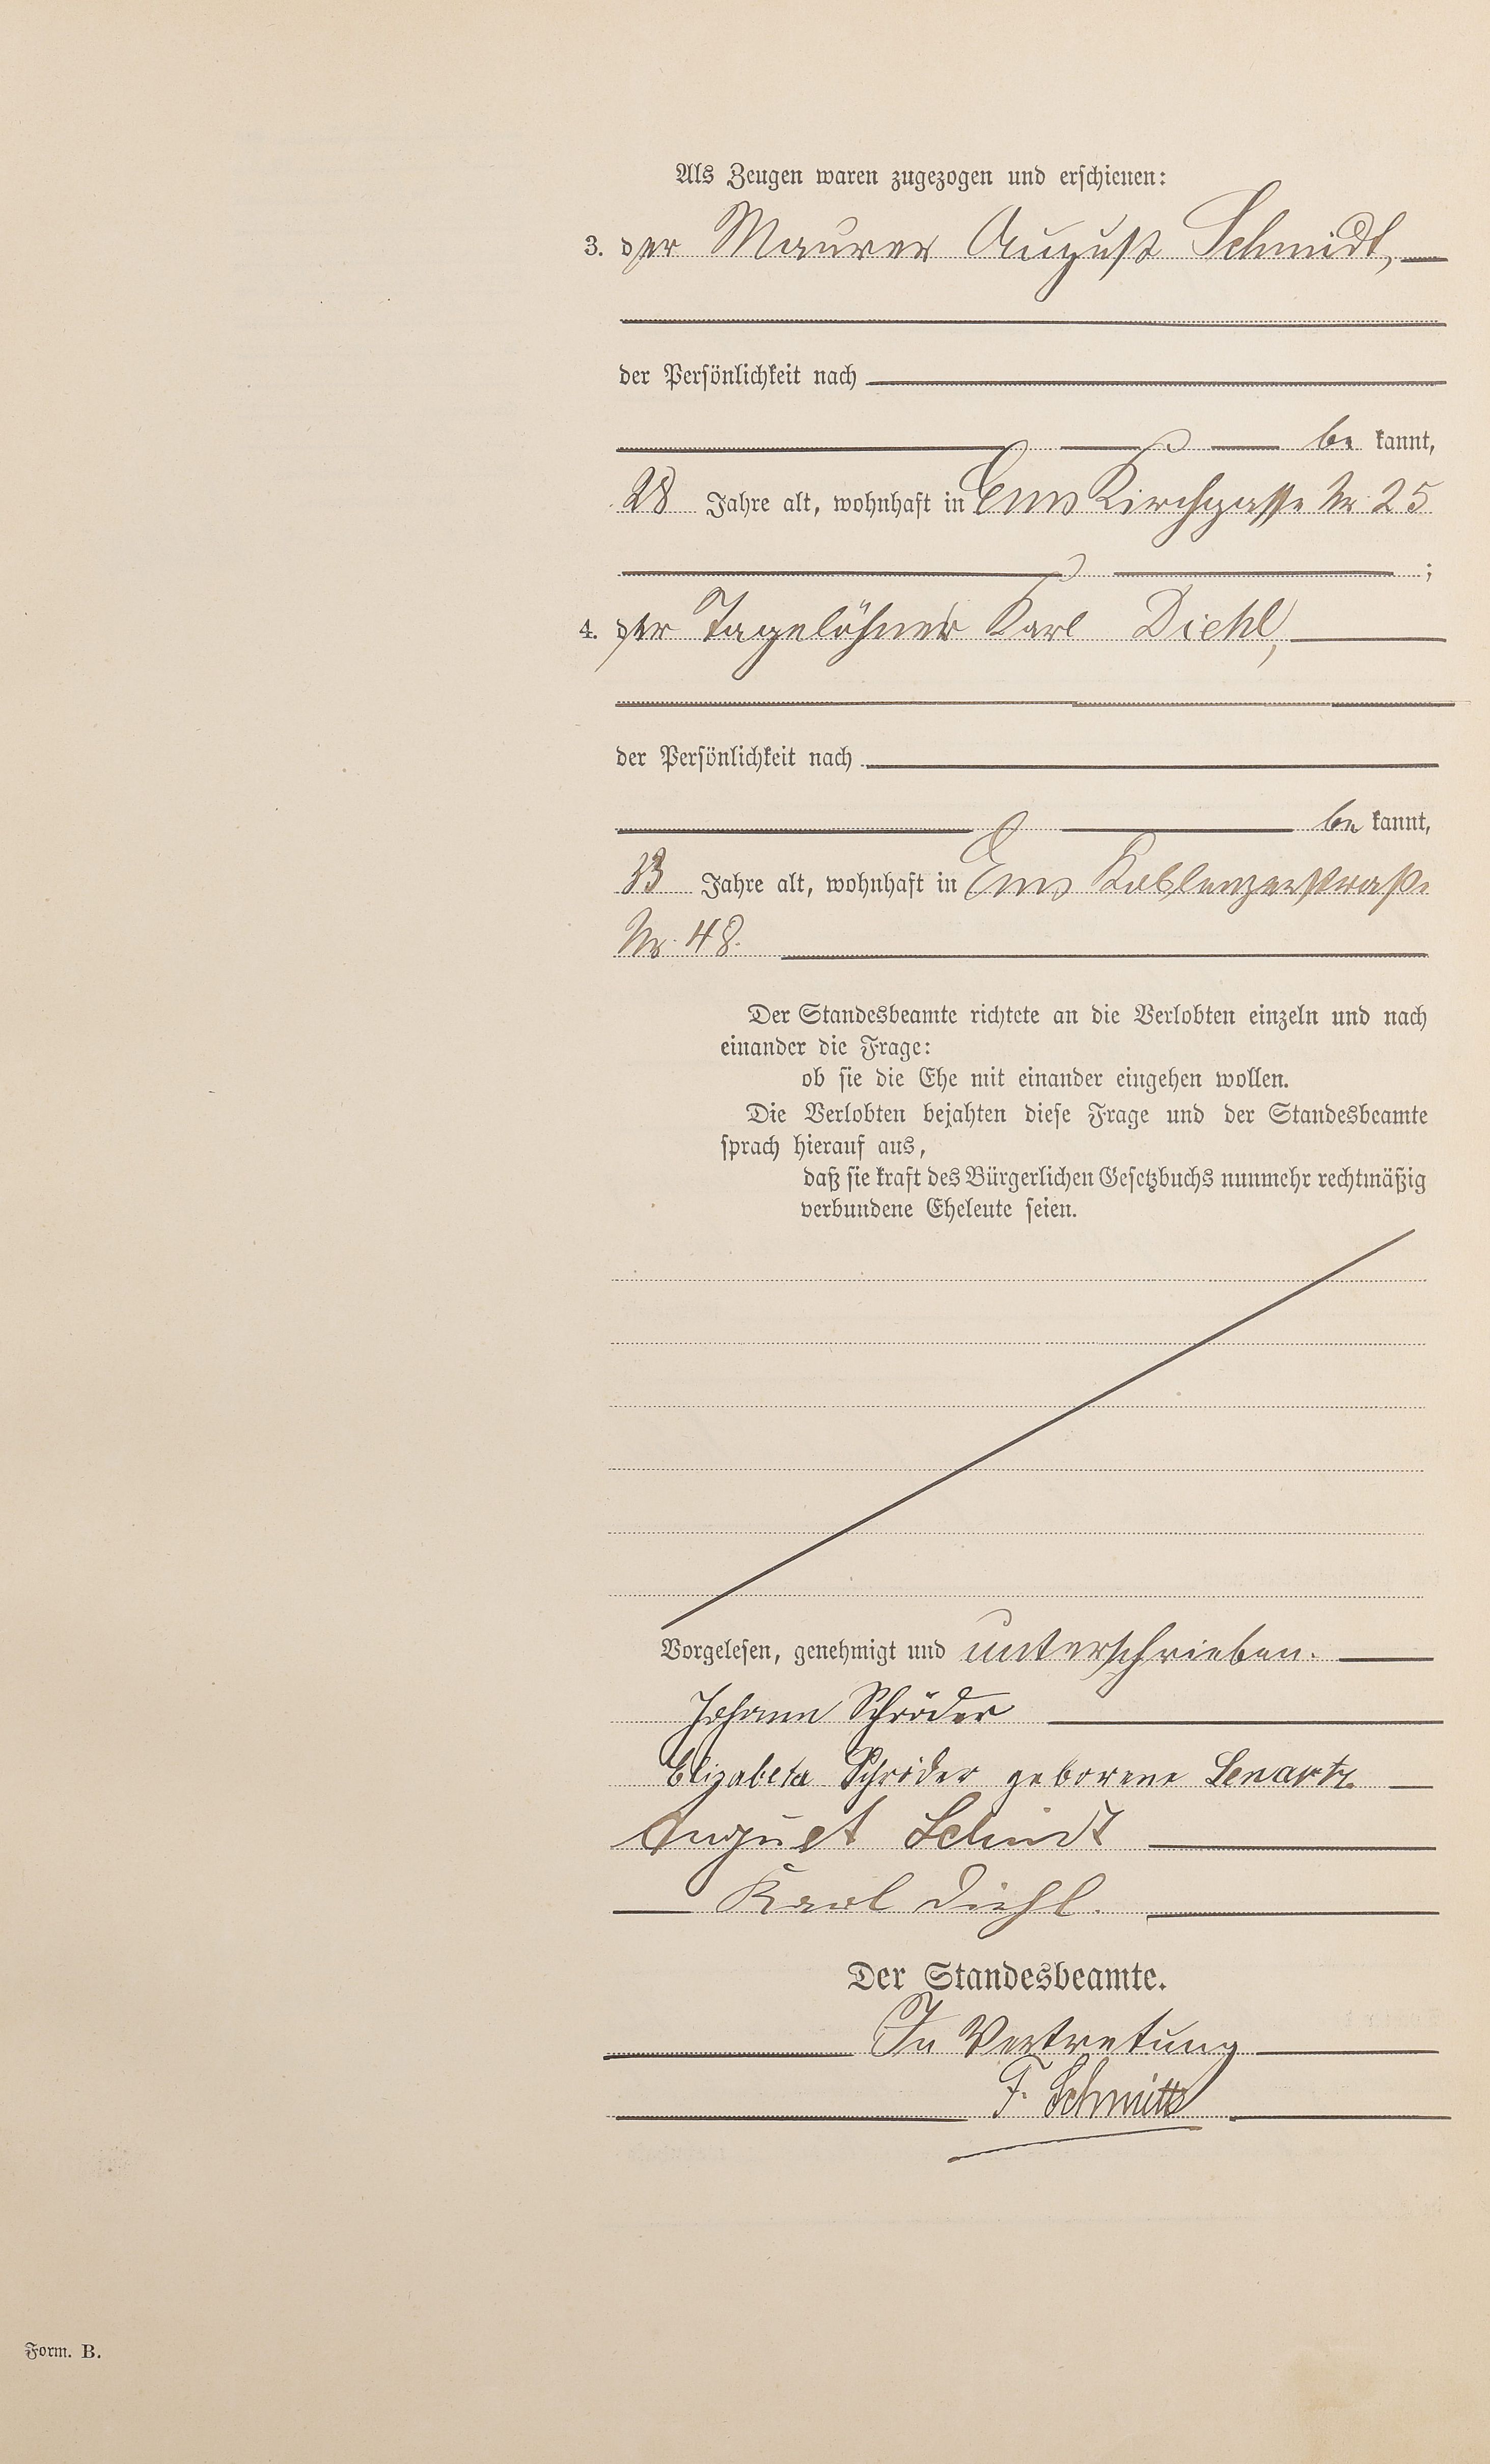 Als Zeugen waren zugezogen und erschienen:
3. der Maurer August Schmidt,
der Persönlichkeit nach
be kannt,
28 Jahre alt, wohnhaft in Ems Kirchgasse Nr. 25
;
4. der Tagelöhner Karl Diehl,
der Persönlichkeit nach
be kannt,
Jahre alt, wohnhaft in Ems Koblenzerstraße
Nr. 48.
Der Standesbeamte richtete an die Verlobten einzeln und nach
einander die Frage:
ob sie die Ehe mit einander eingehen wollen.
Die Verlobten bejahten diese Frage und der Standesbeamte
sprach hierauf aus,
daß sie kraft des Bürgerlichen Gesetzbuchs nunmehr rechtmäßig
verbundene Eheleute seien.
Vorgelesen, genehmigt und unterschrieben.
Johann Schröder
Elizabeta Schröder geborene Lenartz.
August Schmidt
Karl Diehl.
Der Standesbeamte.
In Vertretung
F. Schmitt
Form. B.